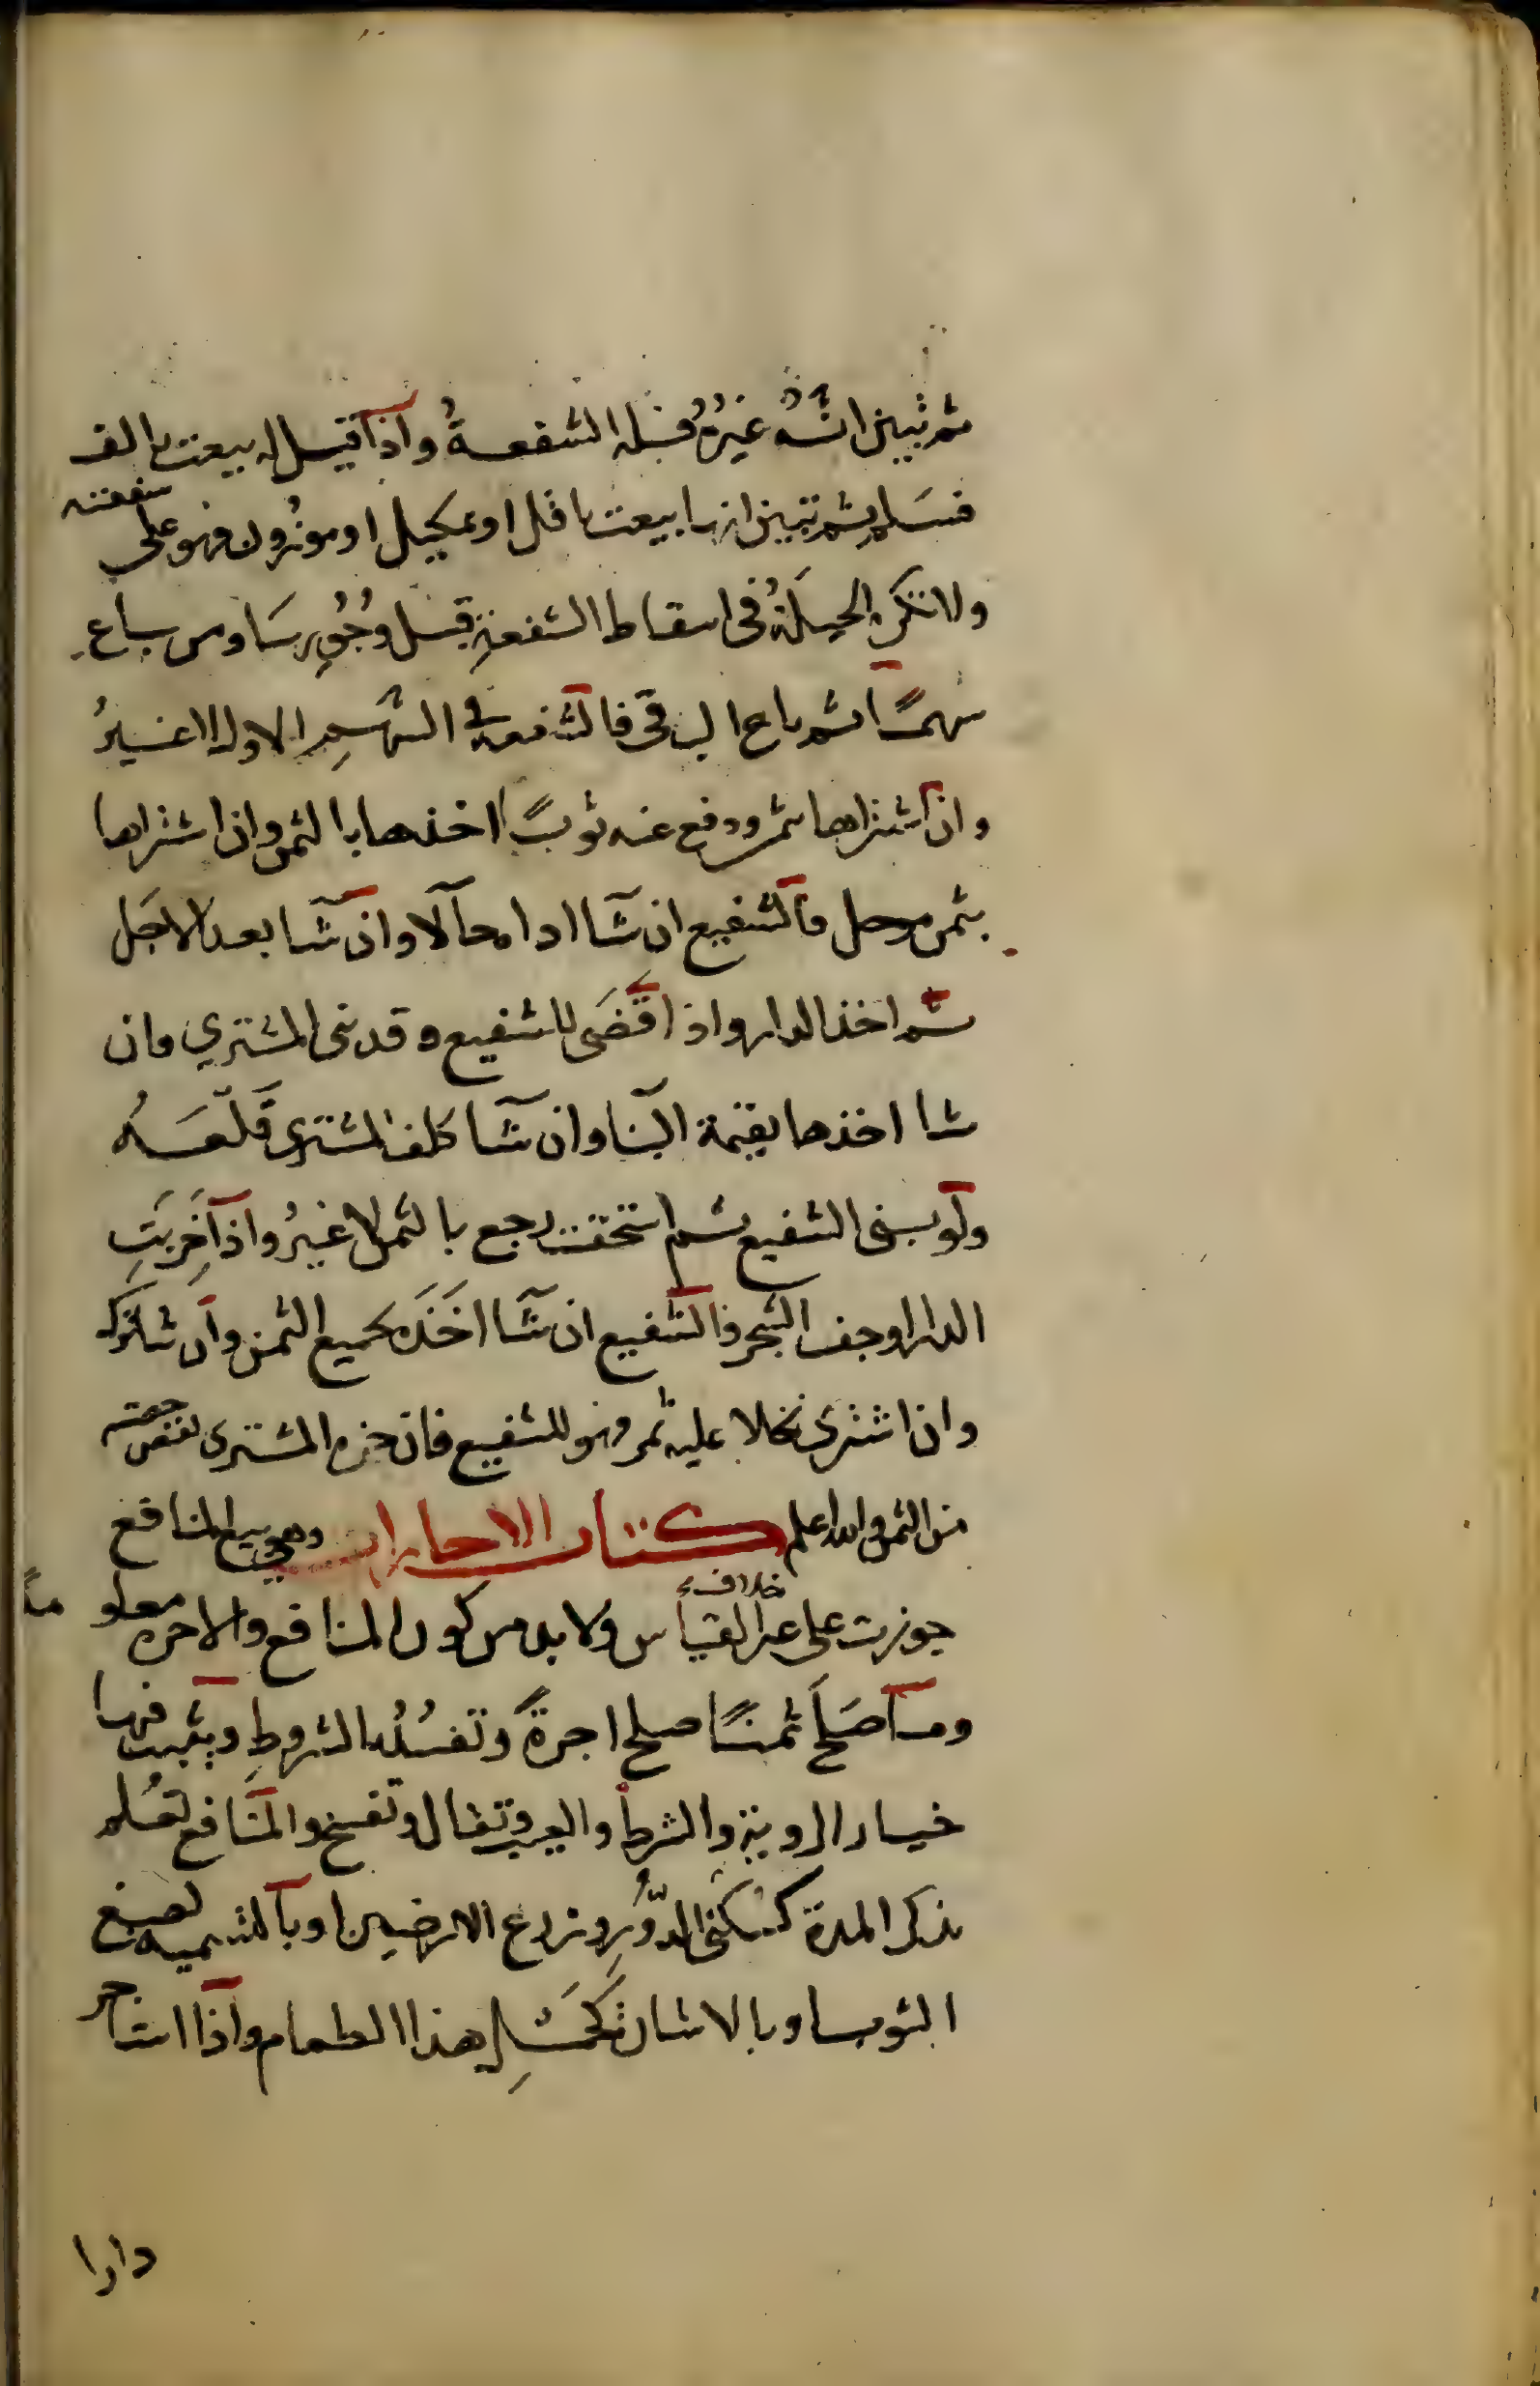 ثم تبين انه غيره فله الشفعةُ واذا قيل له بيعت بالف
فسلم ثم تبين انها بيعت باقل او بمكيل او موزون فهو على شفعته
ولا تكره الحيلةُ فى اسقاط الشفعة قبل وجُوبها ومن باع
سهمًا ثم باع الباقى فالشفعه فى السهمِ الاول لا غيرُ
وان اشتراها بثمن ودفع عنه ثوبًا اخذها بالثمن وان اشتراها
بثمن موجل فالشفيع ان شآ اداه حالا وان شآ بعد الاجل
ثم اخذ الدار واذا قضَى للشفيع وقد بنى المشتري فان
شا اخذها بقيمة البنا وان شآ كلف المشترى قلعَه
ولو بنى الشفيع ثم استحقت رجع بالثمن لا غيرُ واذا خَرِبَتِ
الدار او جف الشجر فالشفيع ان شآ اخَذَه بجميع الثمن وان شا تركه
وان اشترى نخلا عليه ثمر فهو للشفيع فان جزه المشترى نقص حصته
من الثمن والله اعلم كتاب الاجارات وهي بيع المنافع
جوزت على خلاف القياس ولا بد من كون المنافع والاجره معلوماً
وما صَلحَ ثمنًا صلح اجرةً وتفسُد بالشروطِ ويثبت فيها
خيار الروية والشرط والعيب وتقال وتفسخ والمنافع تعُلم
بذكر المدة كسُكنى الدُّورِ وزرع الارضين او بالتسميه كصبغ
الثوب او بالاشارة كحَمْلِ هذا الطعام واذا استاجر
دارا